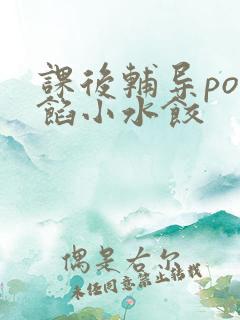 課後輔导po
餡小水餃
偶是右尔
未经同意禁止转载